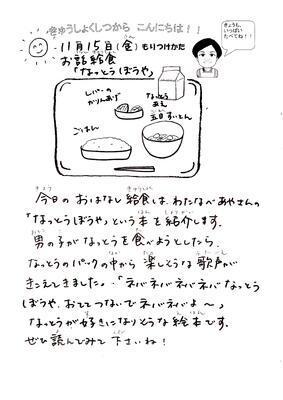 きゅうしょくしつから こんにちは！！
きょうも、
いっぱい
たべてね！！
11月15日(金) もりつけかた
お話給食
「なっとうぼうや」
レバーの
かりんあげ
なっとう
あえ
五目すいとん
ごはん
今日のおはなし給食は、わたなべあやさんの
「なっとうぼうや」という本を紹介します。
男の子がなっとうを食べようとしたら、
なっとうのパックの中から楽しそうな歌声が
きこえてきました。・「ネバネバネバネバなっとう
ぼうや、おててつないでネバネバよ〜」
なっとうが好きになりそうな絵本です。
ぜひ読んでみて下さいね！